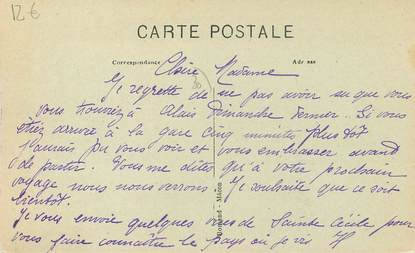 12 €
CARTE POSTALE
Correspondance
Adresse
Chère Madame
Je regrette de ne pas avoir su que vous
vous trouviez à Alais Dimanche dernier. Si vous
étiez arrivée à la gare cinq minutes plus tôt
j'aurais pu vous voir et vous embrasser avant
de partir. Vous me dites qu'à votre prochain
voyage nous nous verrons. Je souhaite que ce soit
bientôt.
Je vous envoie quelques vues de Sainte Cécile pour
vous faire connaître le pays où je vis
Combier - Mâcon